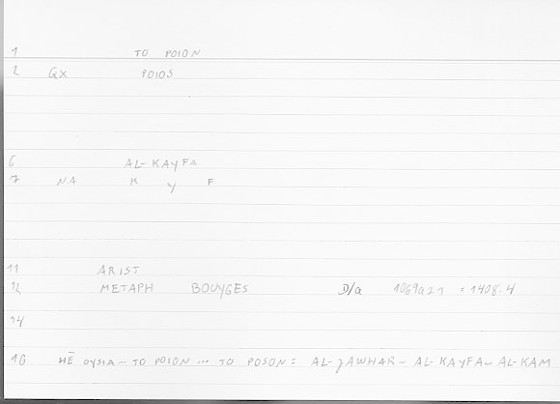 1 TO POION
2 QX POIOS
6 AL-KAYFA
7 NA K Y F
11 ARIST
12 METAPH BOUYGES D/a 1069a21 = 1408.4
14
16 HĒ OYSIA - TO POION ... TO POSON = AL-JAWHAR - AL-KAYFA - AL-KAM